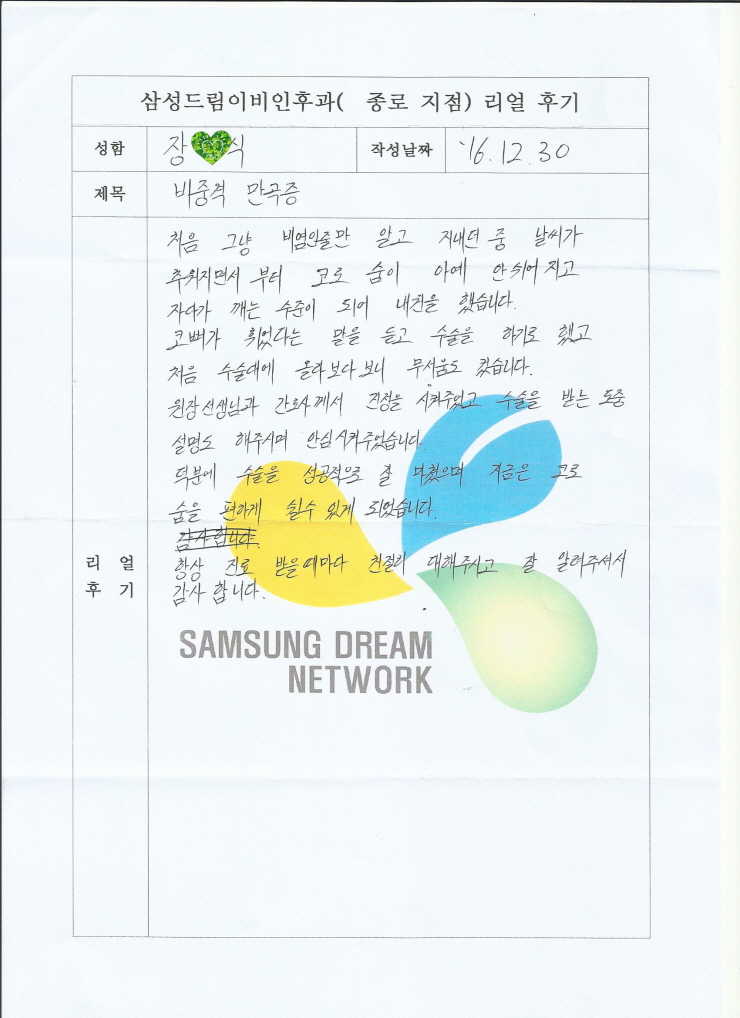 삼성드림이비인후과( 종로 지점) 리얼 후기
성함 장 식 작성날짜 '16.12.30
제목 비중격 만곡증
처음 그냥 비염인줄만 알고 지내던 중 날씨가
추워지면서 부터 코로 숨이 아예 안쉬어 지고
자다가 깨는 수준이 되어 내원을 했습니다.
코뼈가 휘었다는 말을 듣고 수술을 하기로 했고
처음 수술대에 올라보다 보니 무서움도 컸습니다.
원장선생님과 간호사께서 진정을 시켜주었고 수술을 받는 도중
설명도 해주시며 안심시켜주었습니다.
덕분에 수술을 성공적으로 잘 마쳤으며 지금은 코로
숨을 편하게 쉴수 있게 되었습니다.
감사합니다.
리얼 후기
항상 진료 받을때마다 친절히 대해주시고 잘 알려주셔서
감사합니다.
SAMSUNG DREAM
NETWORK